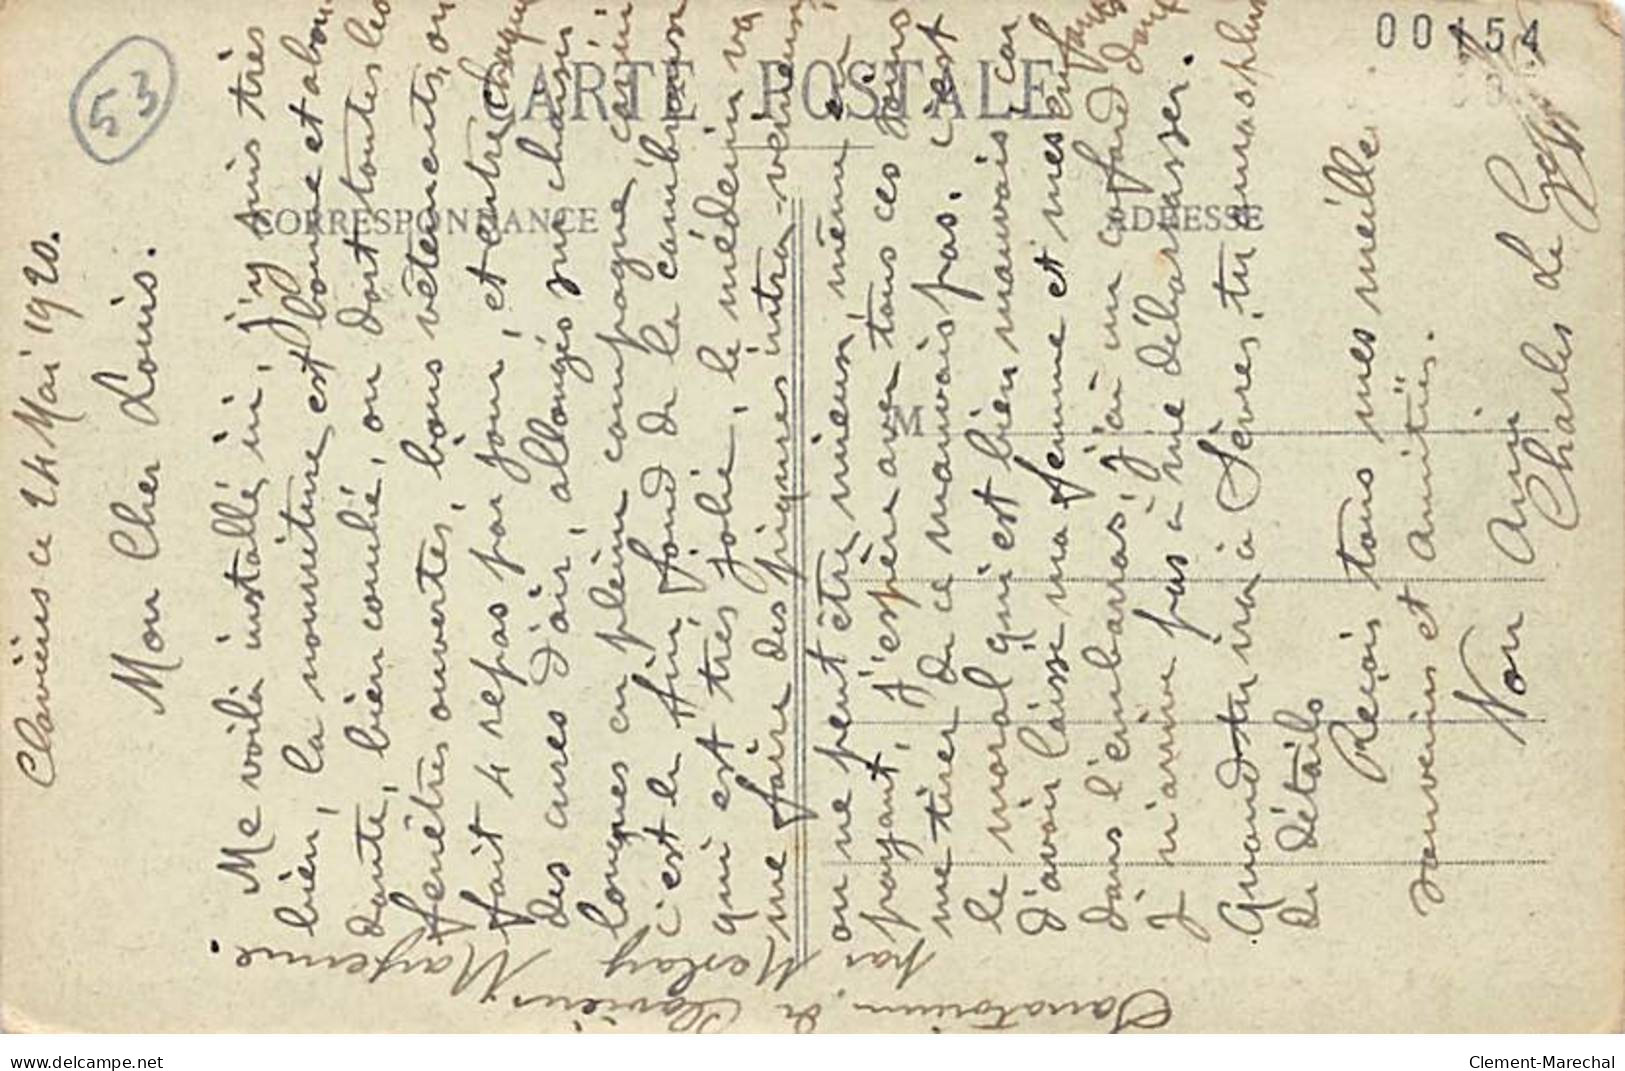 53
00154
CARTE POSTALE
CORRESPONDANCE
ADRESSE
M
Clavières ce 24 Mai 1920.
Mon Cher Louis.
Me voilà installé ici, j'y suis très
bien, la nourriture est bonne et abon
dante, bien couché, on dort toutes les
fenêtres ouvertes, bons vêtements, on
fait 4 repas par jour, et entre chaque
des cures d'air, allongés sur chaises
longues en pleine campagne, car ici
c'est le fin fond de la cambrousse
qui est très jolie, le médecin va
me faire des piqures intra-veineuses
on ne peut être mieux, même en
payant, j'espère avec tous ces soins
me tirer de ce mauvais pas. c'est
le moral qui est bien mauvais car
d'avoir laissé ma femme et mes enfants
dans l'embarras, j'ai un cafard dont
je n'arrive pas à me débarrasser.
Quand tu iras à Sèvres, tu auras plus
de détails
Reçois tous mes meille
souvenirs et amitiés.
Ton Ami
Charles Le
Sanatorium de Clavières,
par Meslay Mayenne.
www.delcampe.net
Clement-Marechal